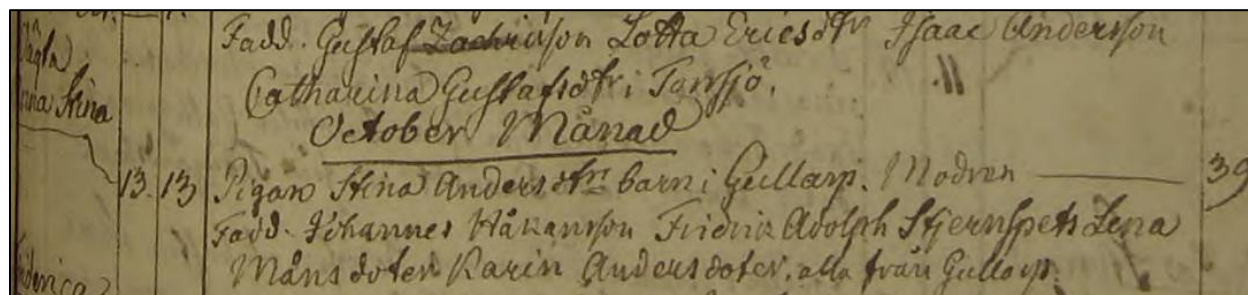 Fadd. Gustaf Zachrisson Lotta Ericsdtr Isaac Andersson
Stina
Catharina Gustafsdtr i Tonsjö.
October Månad
13. 13 Pigan Stina Andersdtrs barn i Gullarp. Modren 39
Fadd. Johannes Håkansson Fridric Adolph Stjernspets Lena
Måns doter Karin Anders doter. alla från Gullarp.